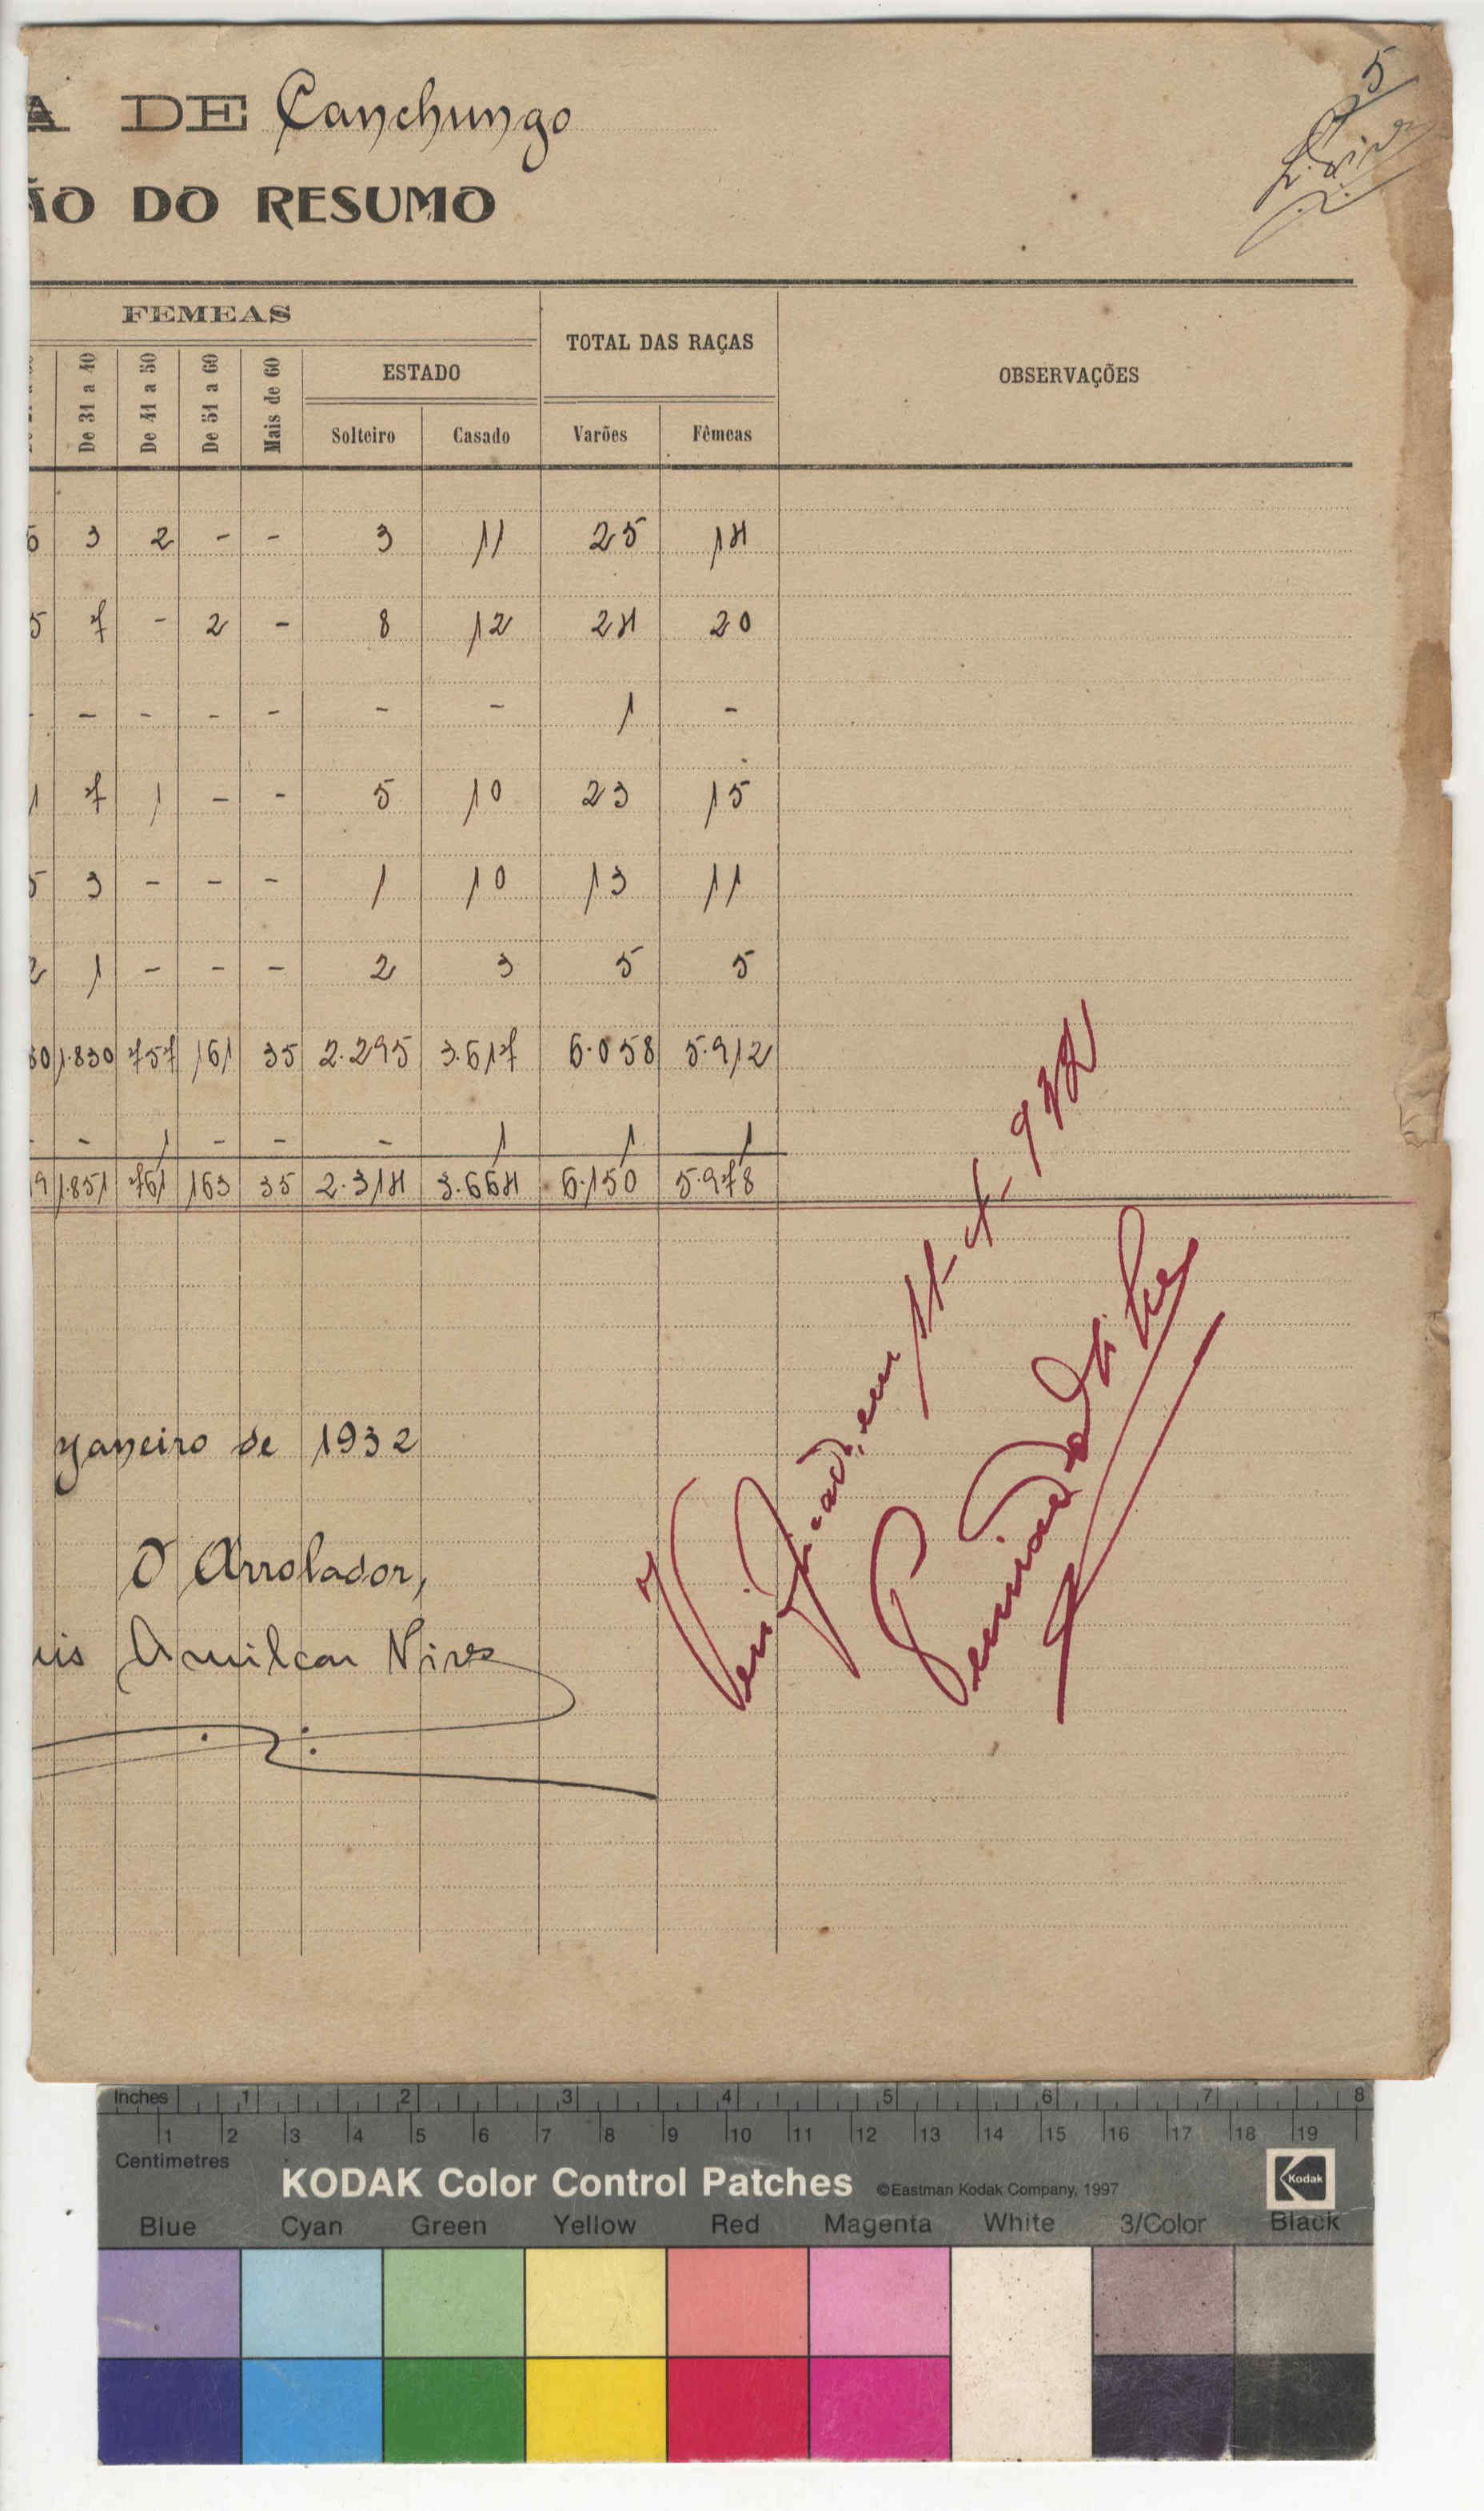 5
A DE Canchungo
ÃO DO RESUMO
FEMEAS
TOTAL DAS RAÇAS
OBSERVAÇÕES
De 31 a 40
De 41 a 50
De 51 a 60
Mais de 60
ESTADO
Solteiro Casado Varões Fêmeas
6 3 2 - - 3 11 25 14
5 7 - 2 - 8 12 24 20
- - - - - - - 1 -
1 7 1 - - 5 10 23 15
5 3 - - - 1 10 13 11
2 1 - - - 2 3 5 5
60 1.830 757 161 35 2.295 3.617 6.058 5.912
- - 1 - - - 1 1 1
9 1.851 761 163 35 2.314 3.664 6.150 5.978
Janeiro de 1932
O Arrolador,
uis Amilcar Nives
Verificado, em
Inches 1 2 3 4 5 6 7 8
1 2 3 4 5 6 7 8 9 10 11 12 13 14 15 16 17 18 19
Centimetres
KODAK Color Control Patches ©Eastman Kodak Company, 1997 Kodak
Blue Cyan Green Yellow Red Magenta White 3/Color Black